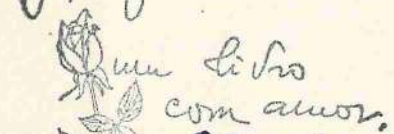 um livro
com amor.